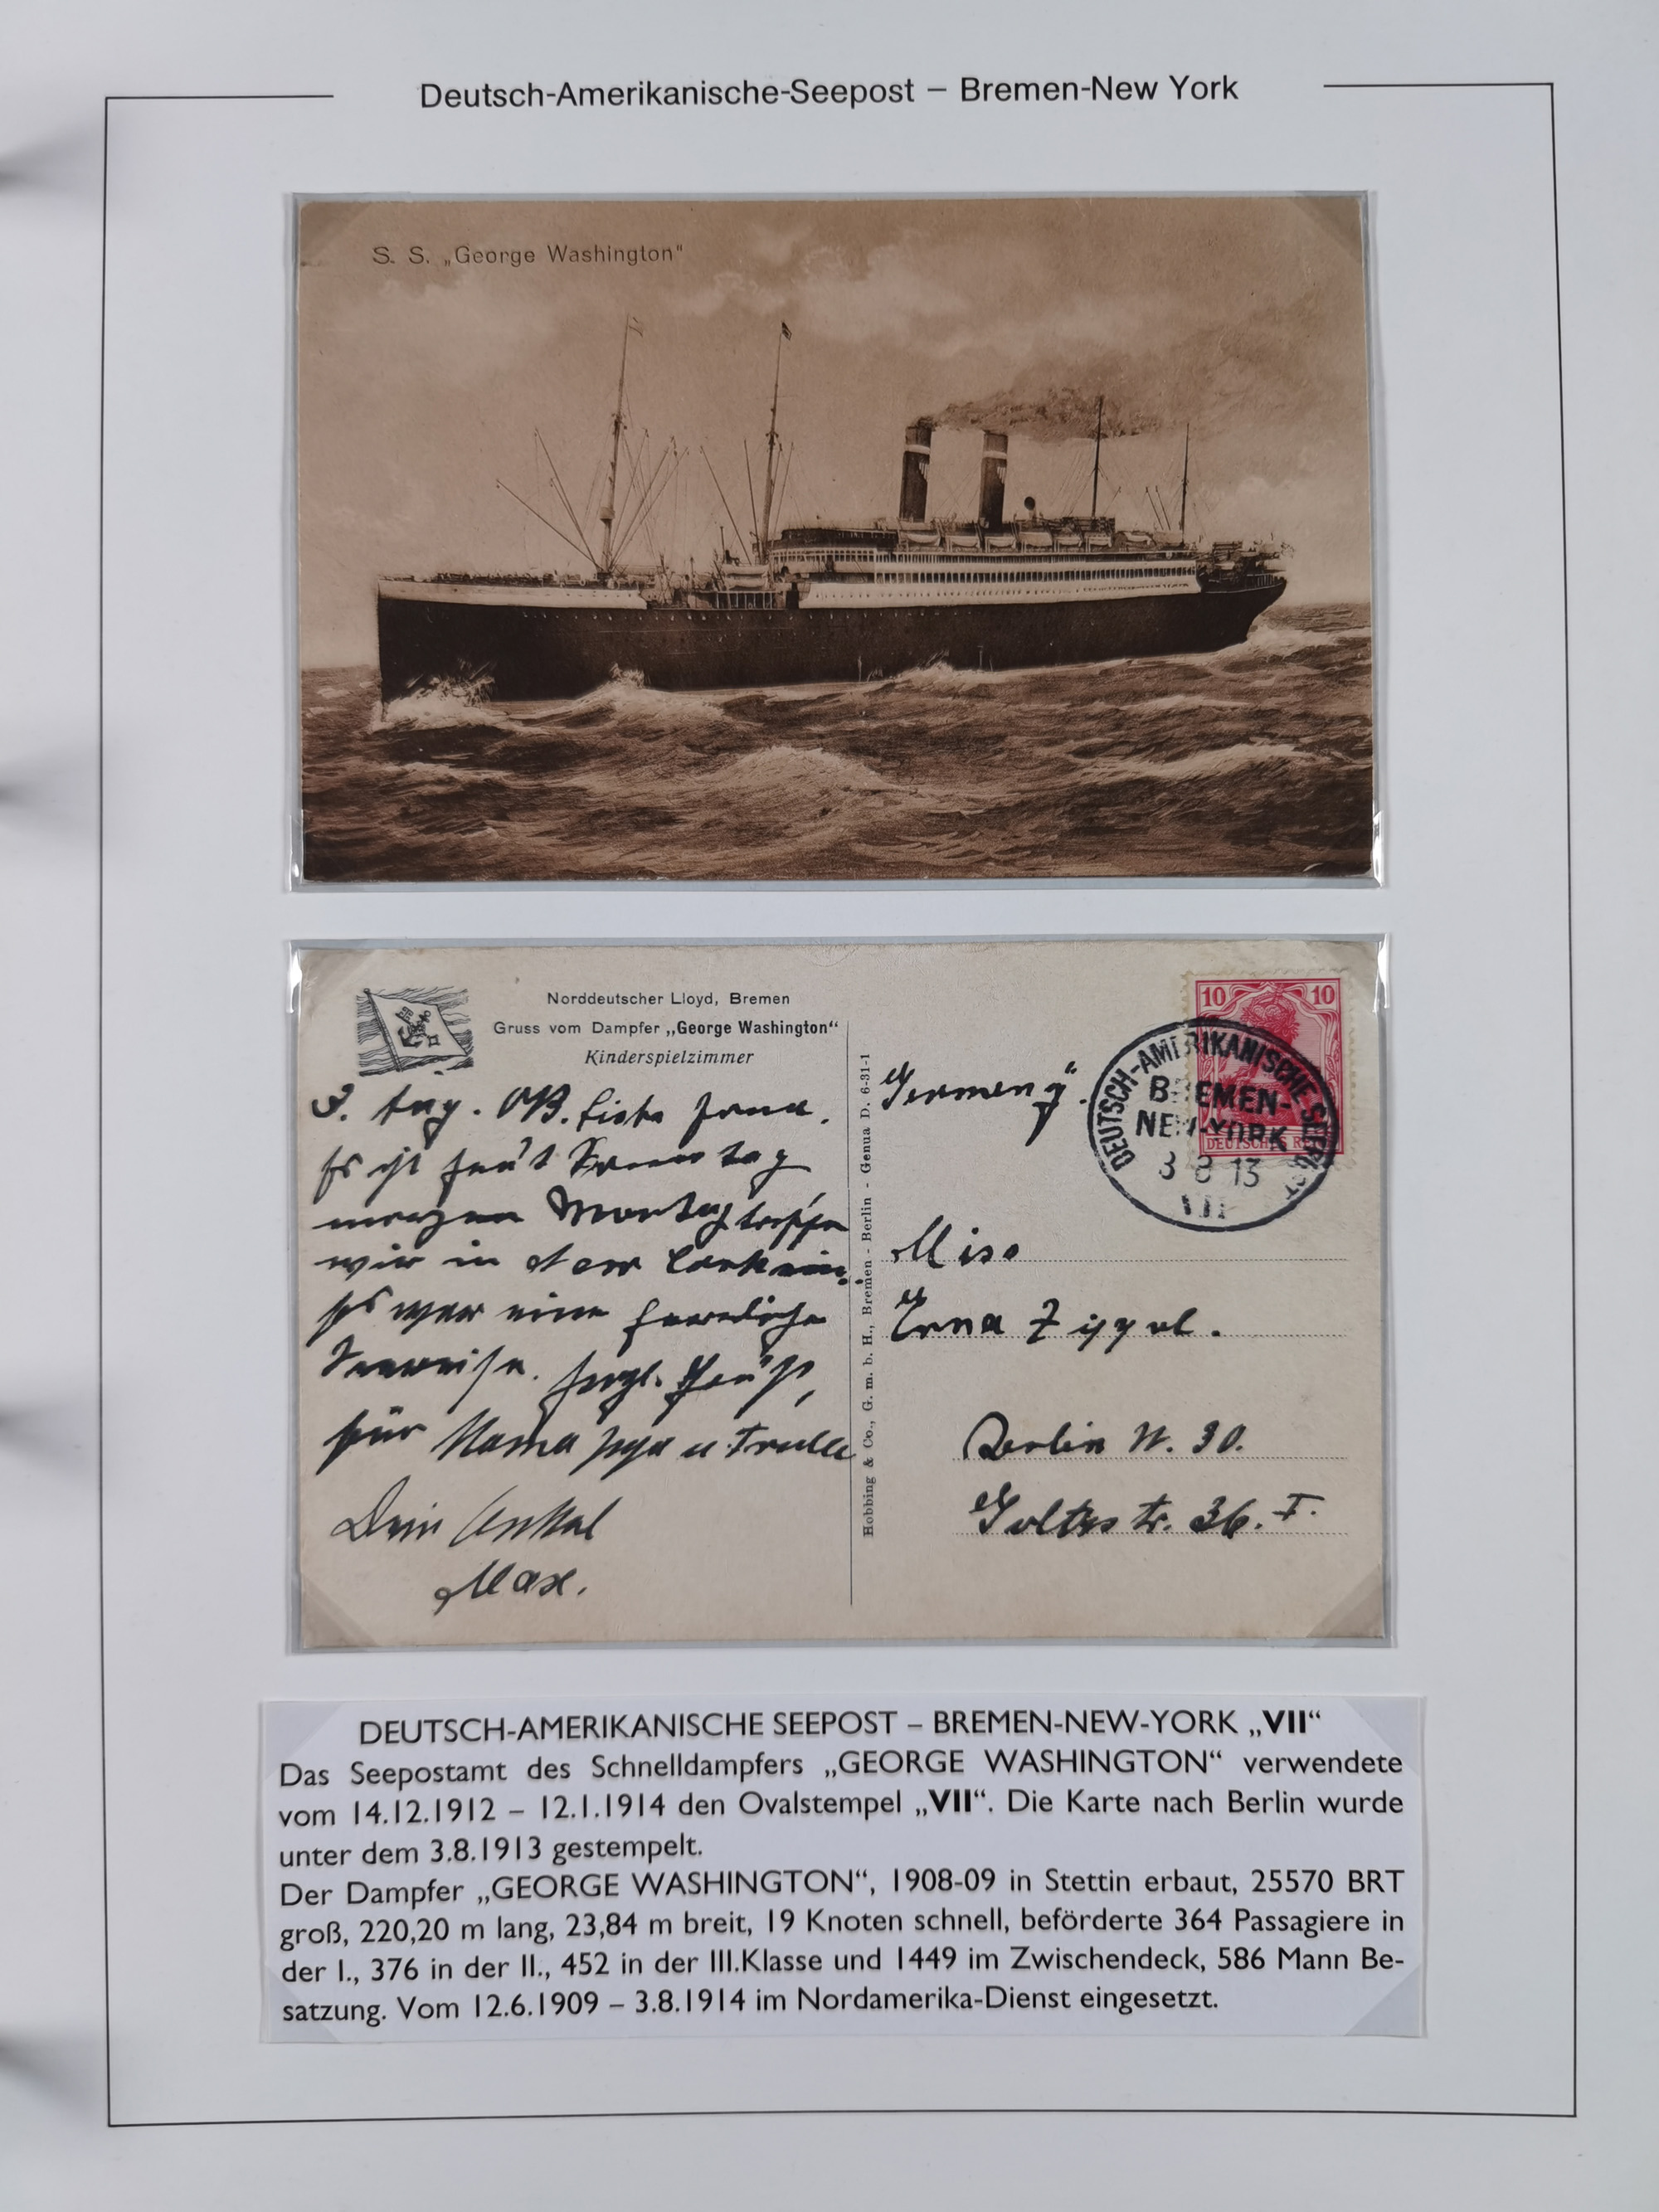 Deutsch-Amerikanische-Seepost – Bremen-New York
S. S. „George Washington"
Norddeutscher Lloyd, Bremen
Gruss vom Dampfer „George Washington“
Kinderspielzimmer
3. Aug. 1913. Liebe Erna.
Es ist heut Sonntag
morgen Montag treffen
wir in New York ein.
Es war eine herrliche
Seereise. Herzl. Grüße,
für Mama Papa u Trude
Dein Onkel
Max.
Hobbing & Co., G. m. b. H., Bremen - Berlin - Genua D. 6-31-1
10 10
DEUTSCHES REICH
DEUTSCH-AMERIKANISCHE SEEPOST
BREMEN-
NEW-YORK
3 8 13
VII
Germany.
Miss
Erna
Berlin W. 30.
Goltzstr. 36. I.
DEUTSCH-AMERIKANISCHE SEEPOST – BREMEN-NEW-YORK „VII“
Das Seepostamt des Schnelldampfers „GEORGE WASHINGTON“ verwendete
vom 14.12.1912 – 12.1.1914 den Ovalstempel „VII“. Die Karte nach Berlin wurde
unter dem 3.8.1913 gestempelt.
Der Dampfer „GEORGE WASHINGTON“, 1908-09 in Stettin erbaut, 25570 BRT
groß, 220,20 m lang, 23,84 m breit, 19 Knoten schnell, beförderte 364 Passagiere in
der I., 376 in der II., 452 in der III.Klasse und 1449 im Zwischendeck, 586 Mann Be-
satzung. Vom 12.6.1909 – 3.8.1914 im Nordamerika-Dienst eingesetzt.